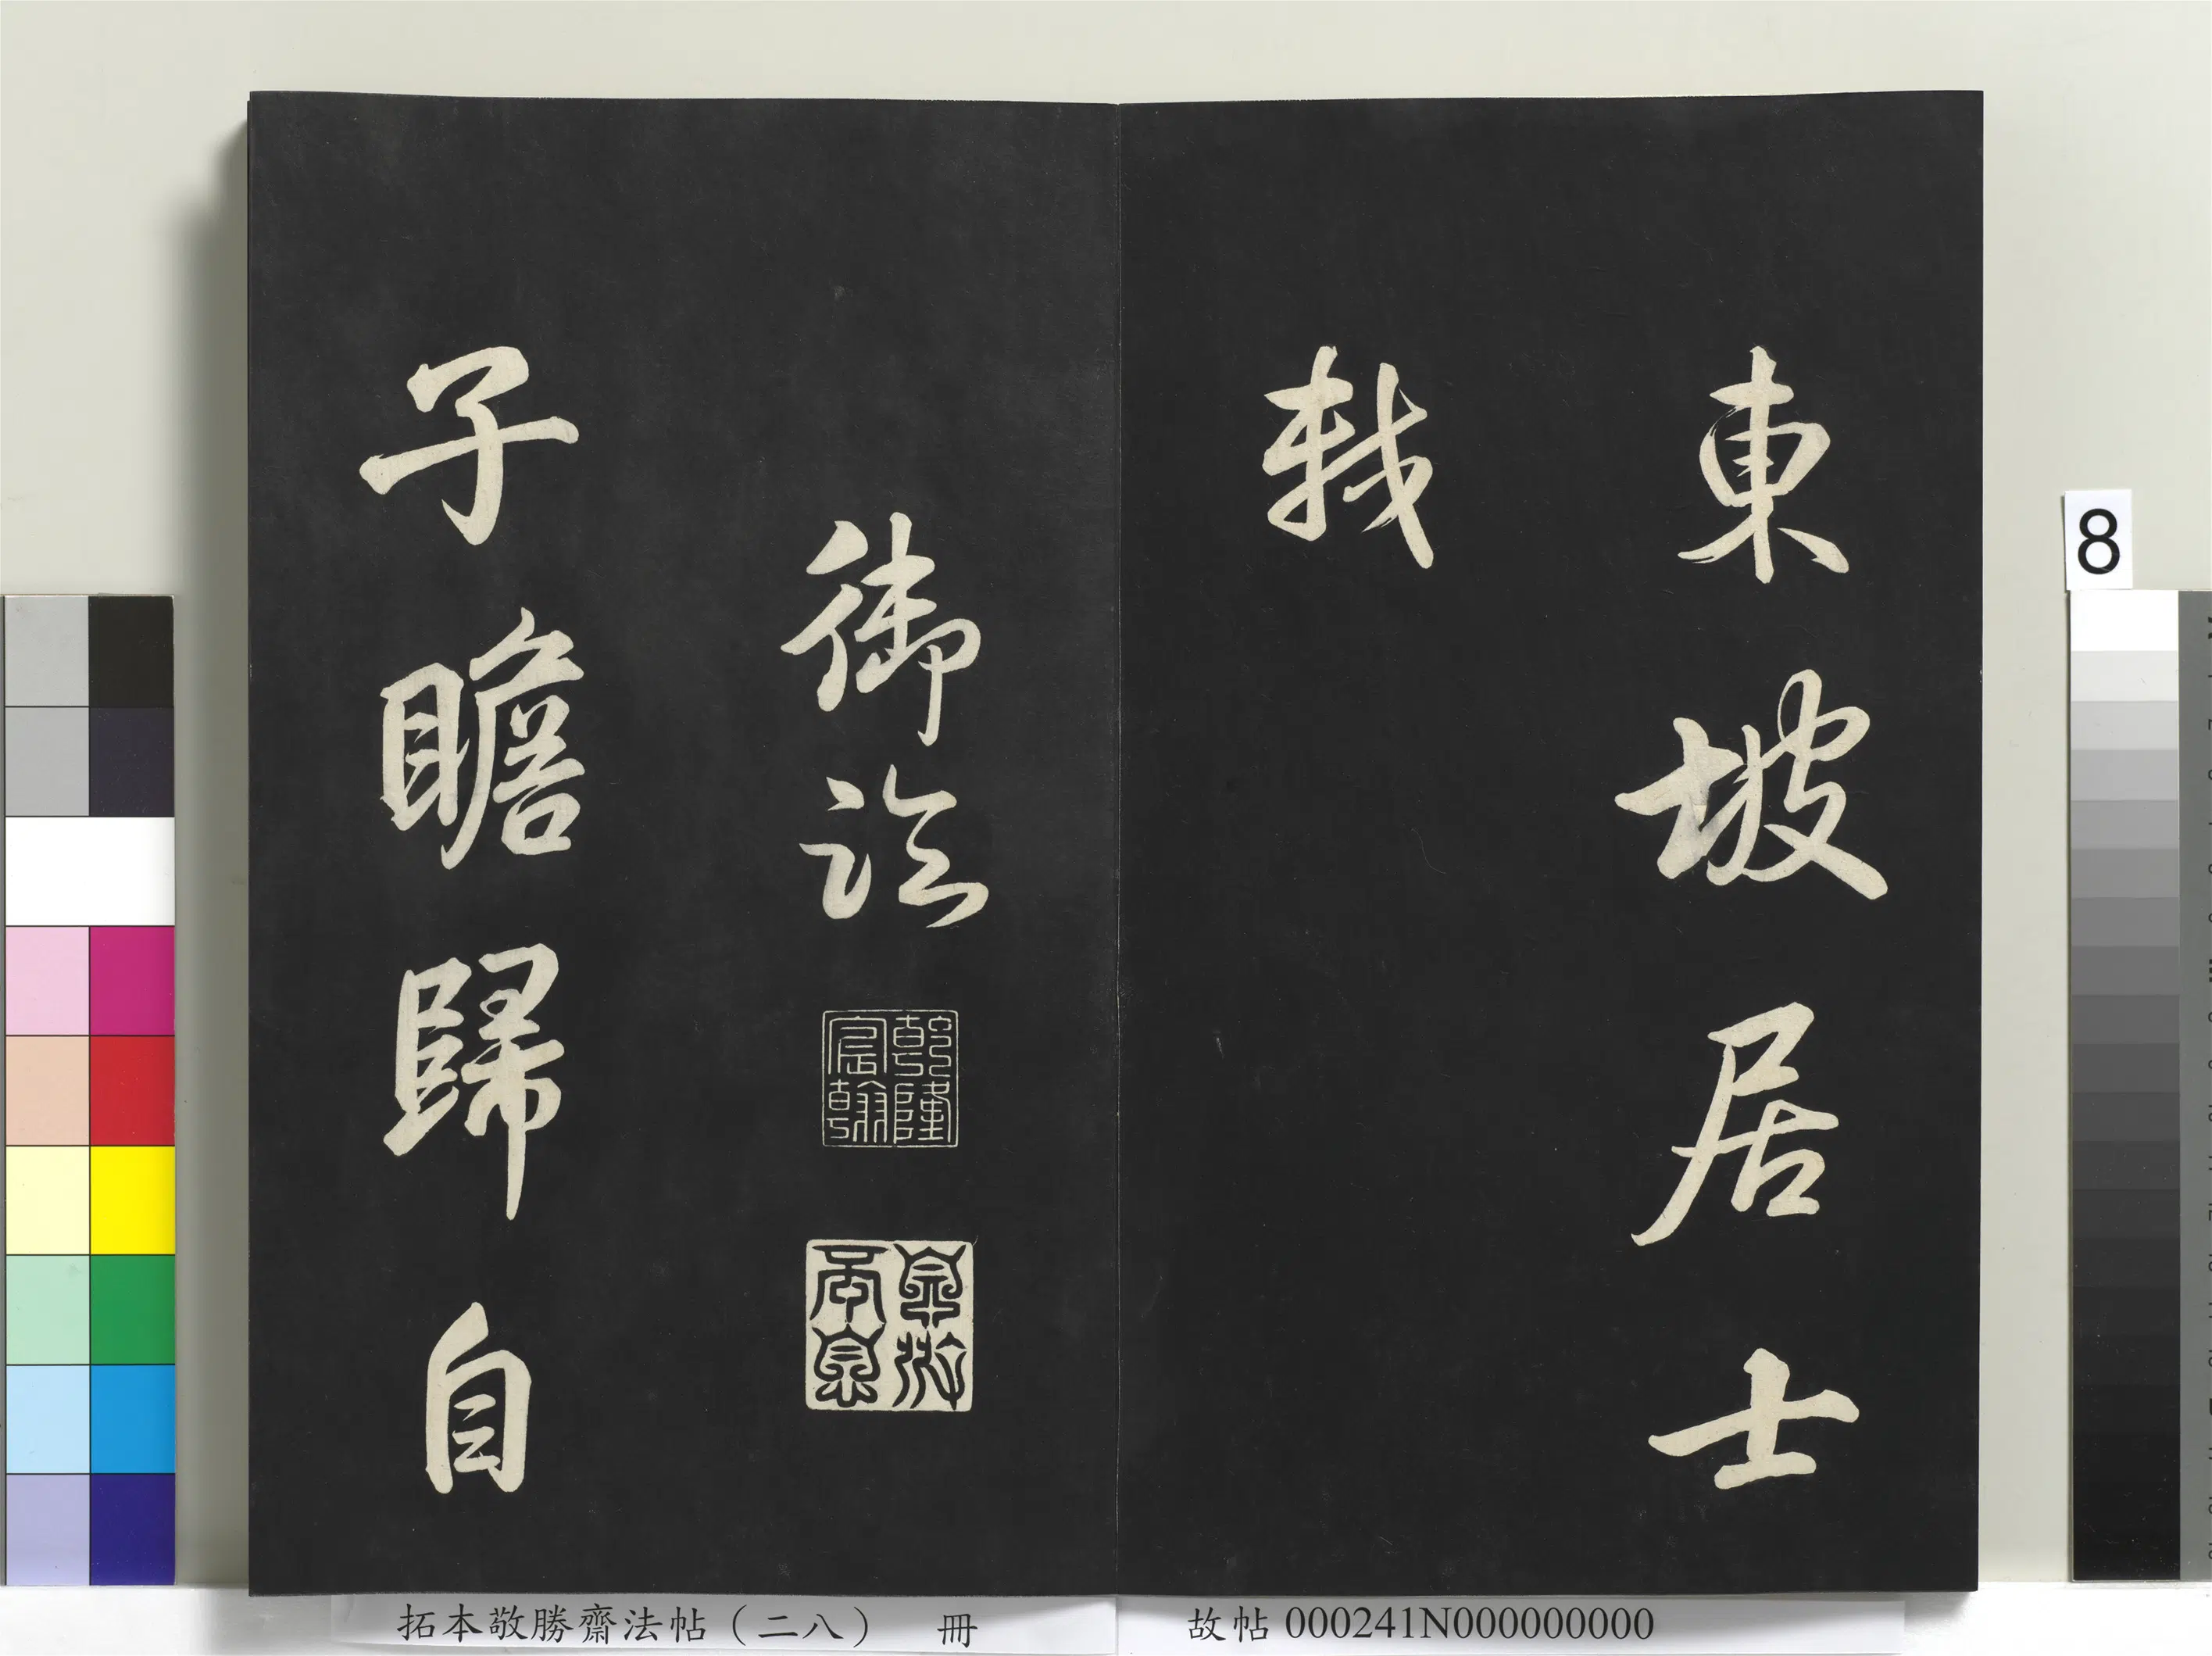 東坡居士
軾
御臨
乾隆宸翰
子瞻歸自
拓本敬勝齋法帖(二八) 冊
故帖 000241N000000000
8